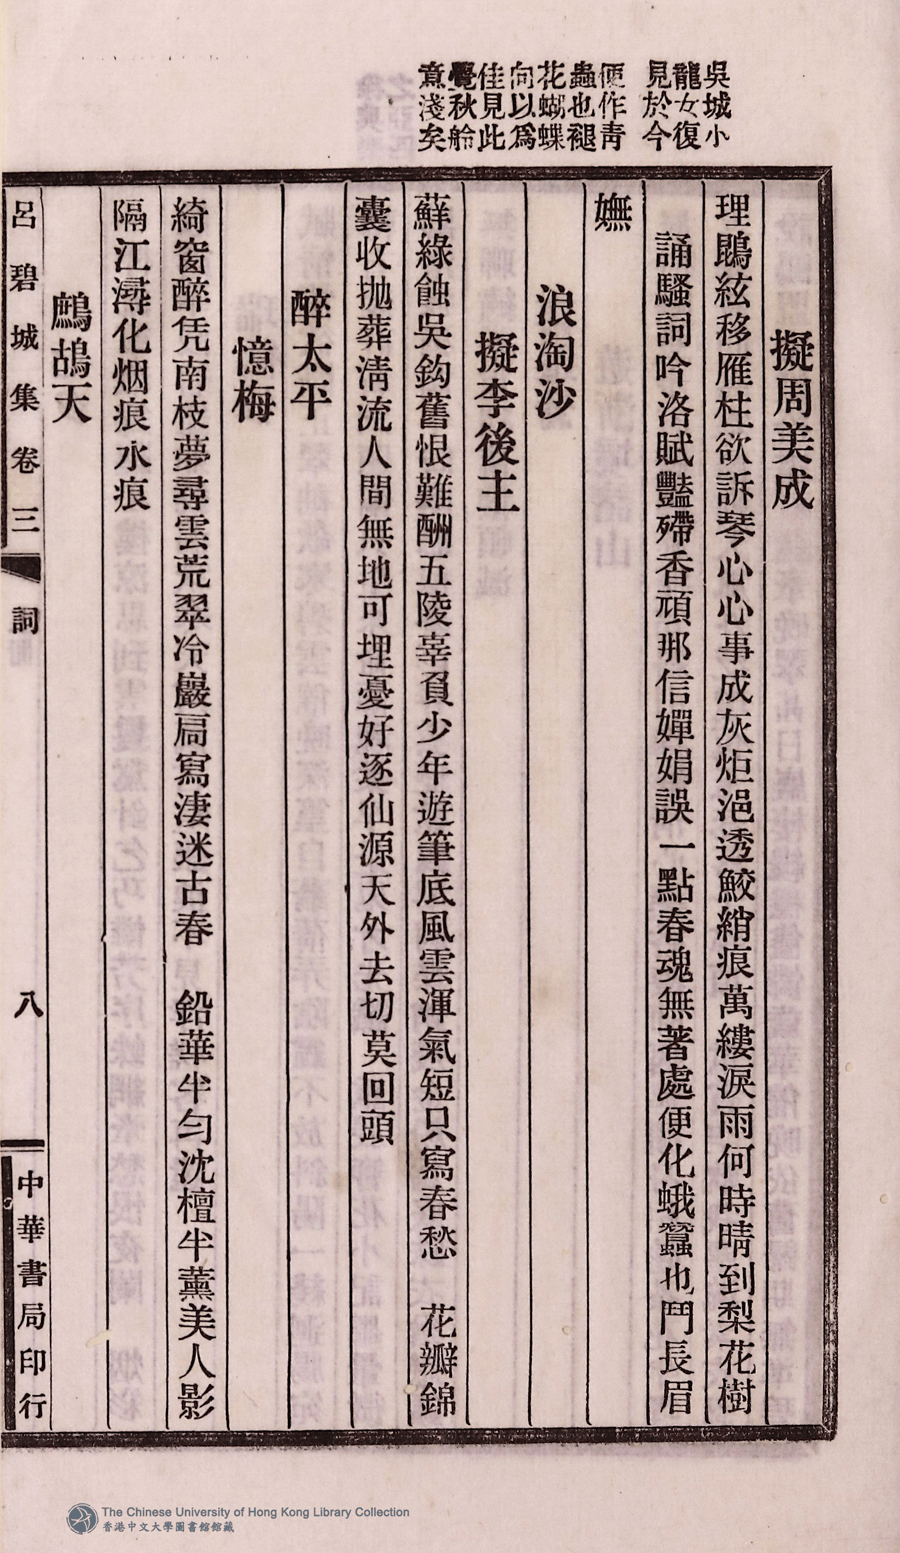 吳城小
龍女復
見於今
便作青
蟲也褪
花蝴蝶
向以爲
佳見此
覺秋舲
意淺矣
擬周美成
理鵾絃移雁柱欲訴琴心心事成灰炬浥透鮫綃痕萬縷淚雨何時晴到梨花樹
誦騷詞吟洛賦豔殢香頑那信嬋娟誤一點春魂無著處便化蛾蠶也鬥長眉
嫵
浪淘沙
擬李後主
蘇綠蝕吳鈎舊恨難酬五陵辜負少年遊筆底風雲渾氣短只寫春愁　花瓣錦
囊收抛葬淸流人間無地可埋憂好逐仙源天外去切莫回頭
醉太平
憶梅
綺窗醉凭南枝夢尋雲荒翠冷巖扃寫淒迷古春　鉛華半勻沈檀半薰美人影
隔江潯化烟痕水痕
鷓鴣天
呂碧城集卷三　詞　八　中華書局印行
The Chinese University of Hong Kong Library Collection
香港中文大學圖書館館藏